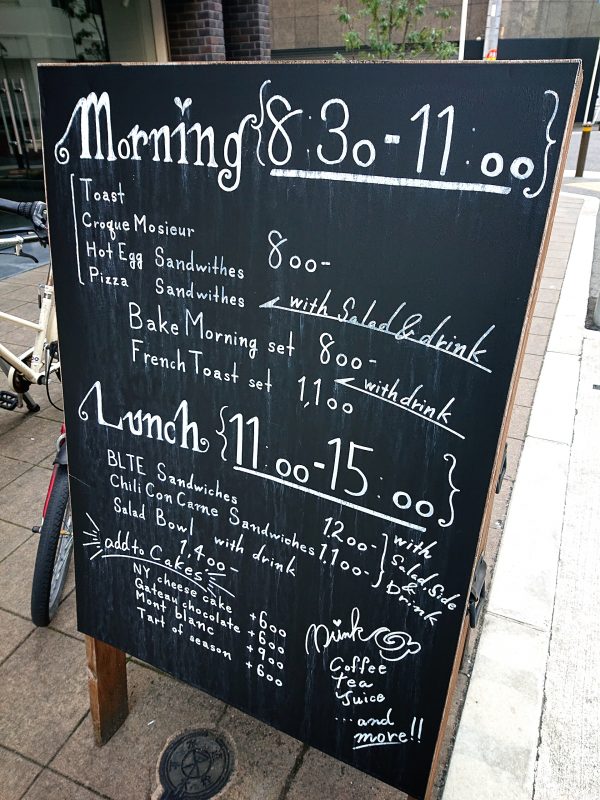 Morning {8:30-11:00}
Toast
Croque Mosieur
Hot Egg Sandwithes 800-
Pizza Sandwithes
with Salad & drink
Bake Morning set 800-
French Toast set 1,100
with drink
Lunch {11:00-15:00}
BLTE Sandwiches 1200-
Chili Con Carne Sandwiches 1,100-
with Salad, Side & Drink
Salad Bowl with drink
1,400-
add to Cakes
NY cheese cake +600
Gateau chocolate +600
Mont blanc +900
Tart of season +600
Drink
Coffee
Tea
Juice
...and
more!!